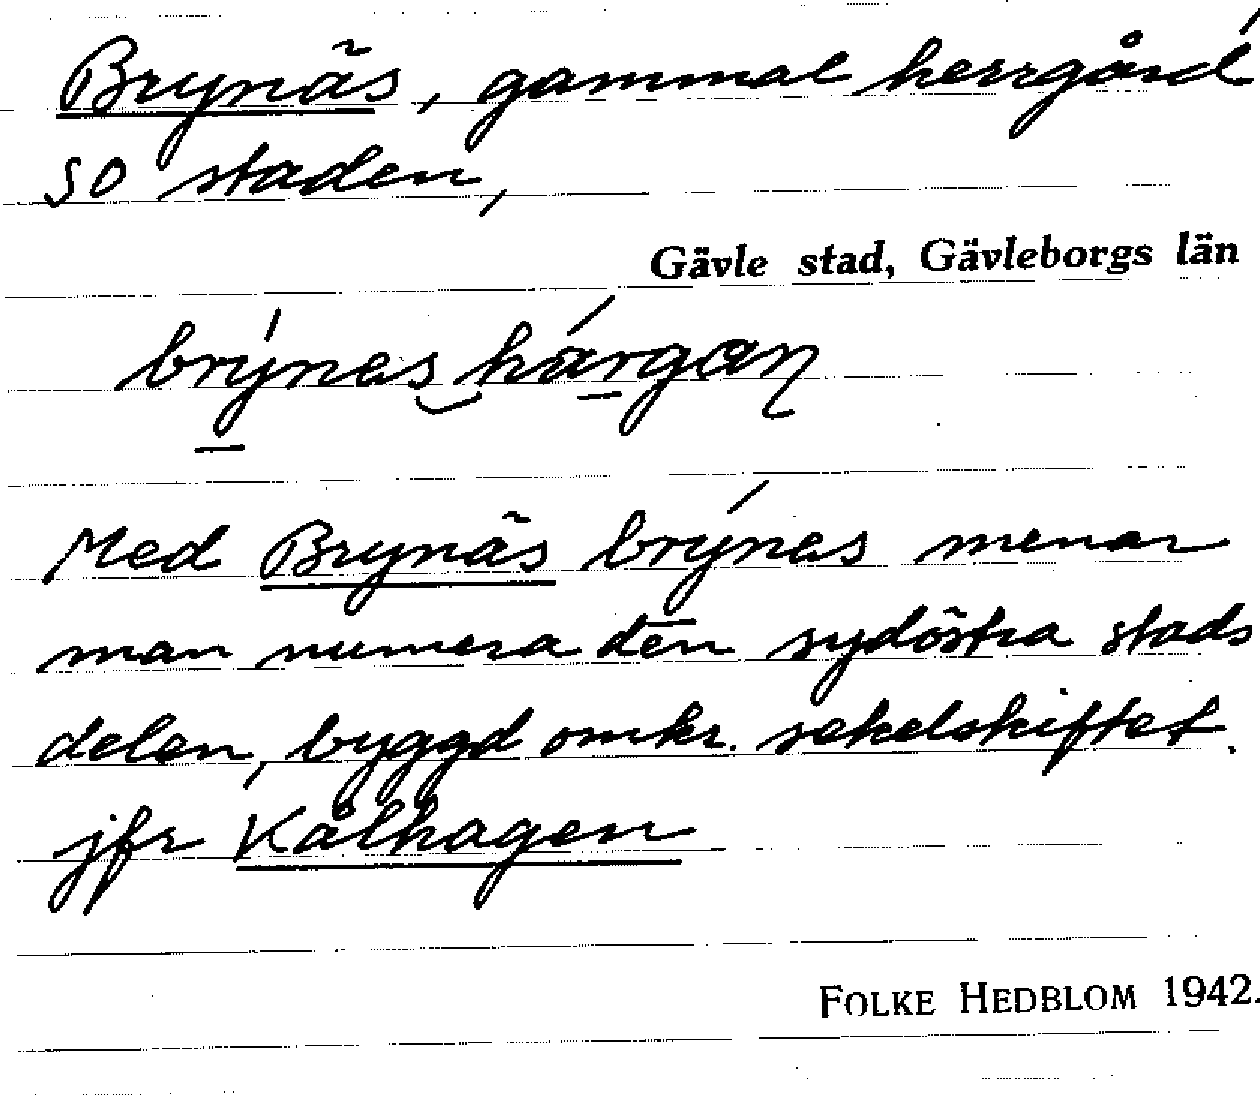 Brynäs, gammal herrgård
SO staden,
Gävle stad, Gävleborgs län
brýnes hárgan
Med Brynäs brýnes menar
man numera den sydöstra stads
delen, byggd omkr. sekelskiftet.
jfr Kålhagen
FOLKE HEDBLOM 1942.